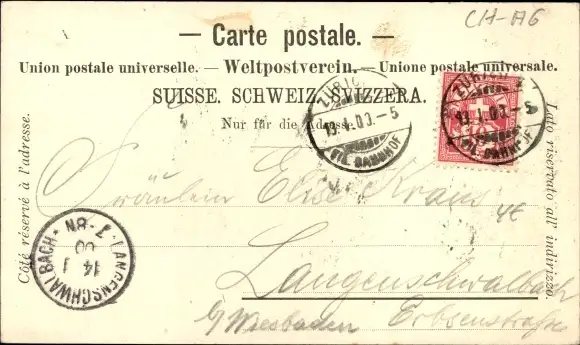 CH-A6
— Carte postale. —
Union postale universelle. — Weltpostverein. — Unione postale universale.
SUISSE. SCHWEIZ. SVIZZERA.
Nur für die Adresse.
Côté réservé à l'adresse.
Lato riservato all' indirizzo.
ZÜRICH
13.I.00.-5
FIL. BAHNHOF
ZÜRICH
13.I.00.-5
FIL. BAHNHOF
Fräulein Elise Kraus
4€
LANGENSCHWALBACH
14 1
00
7-8N
Langenschwalbach
b/Wiesbaden Erbsenstraße